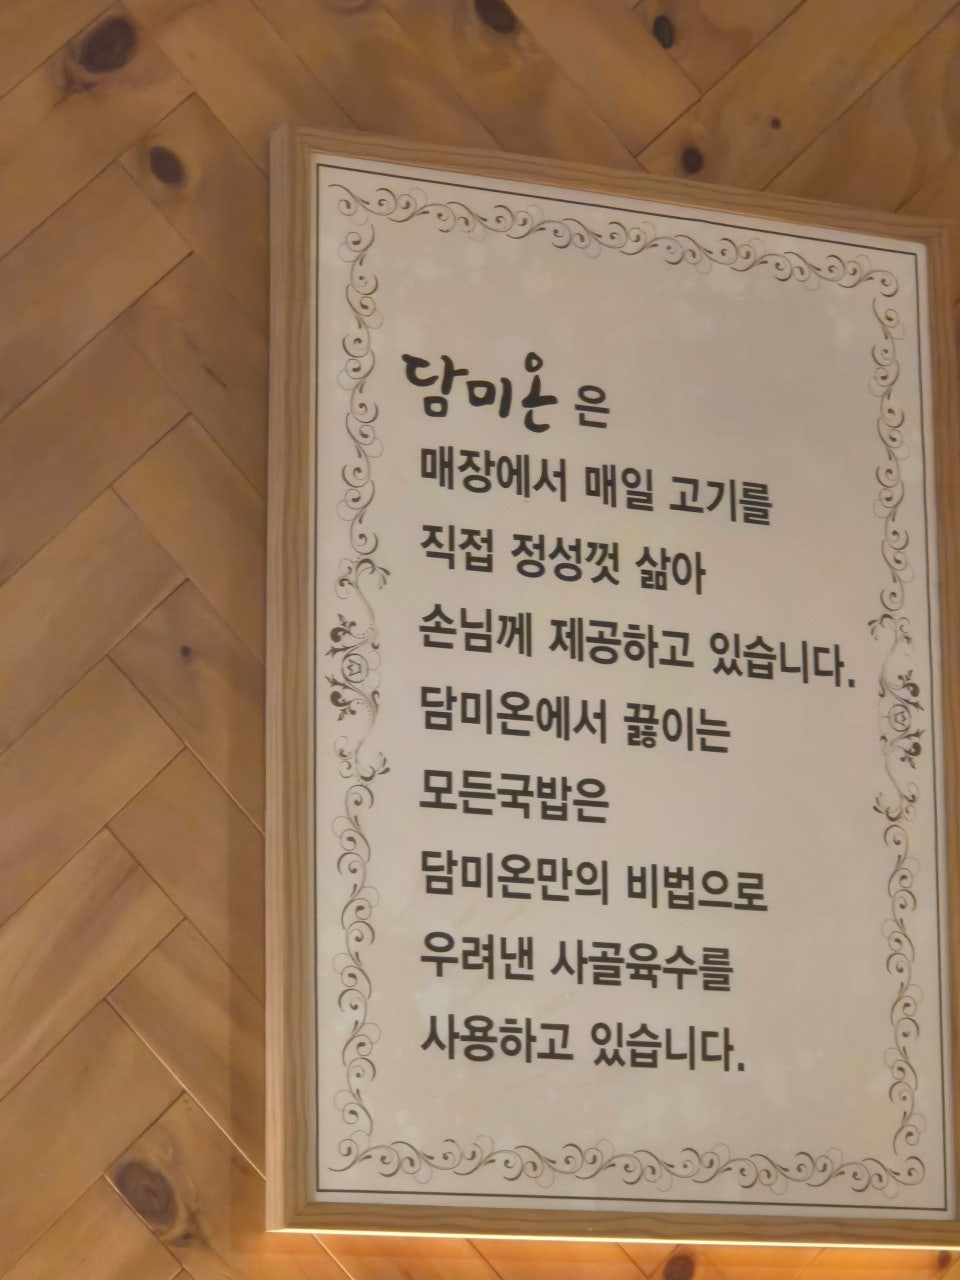 담미온은
매장에서 매일 고기를
직접 정성껏 삶아
손님께 제공하고 있습니다.
담미온에서 끓이는
모든국밥은
담미온만의 비법으로
우려낸 사골육수를
사용하고 있습니다.